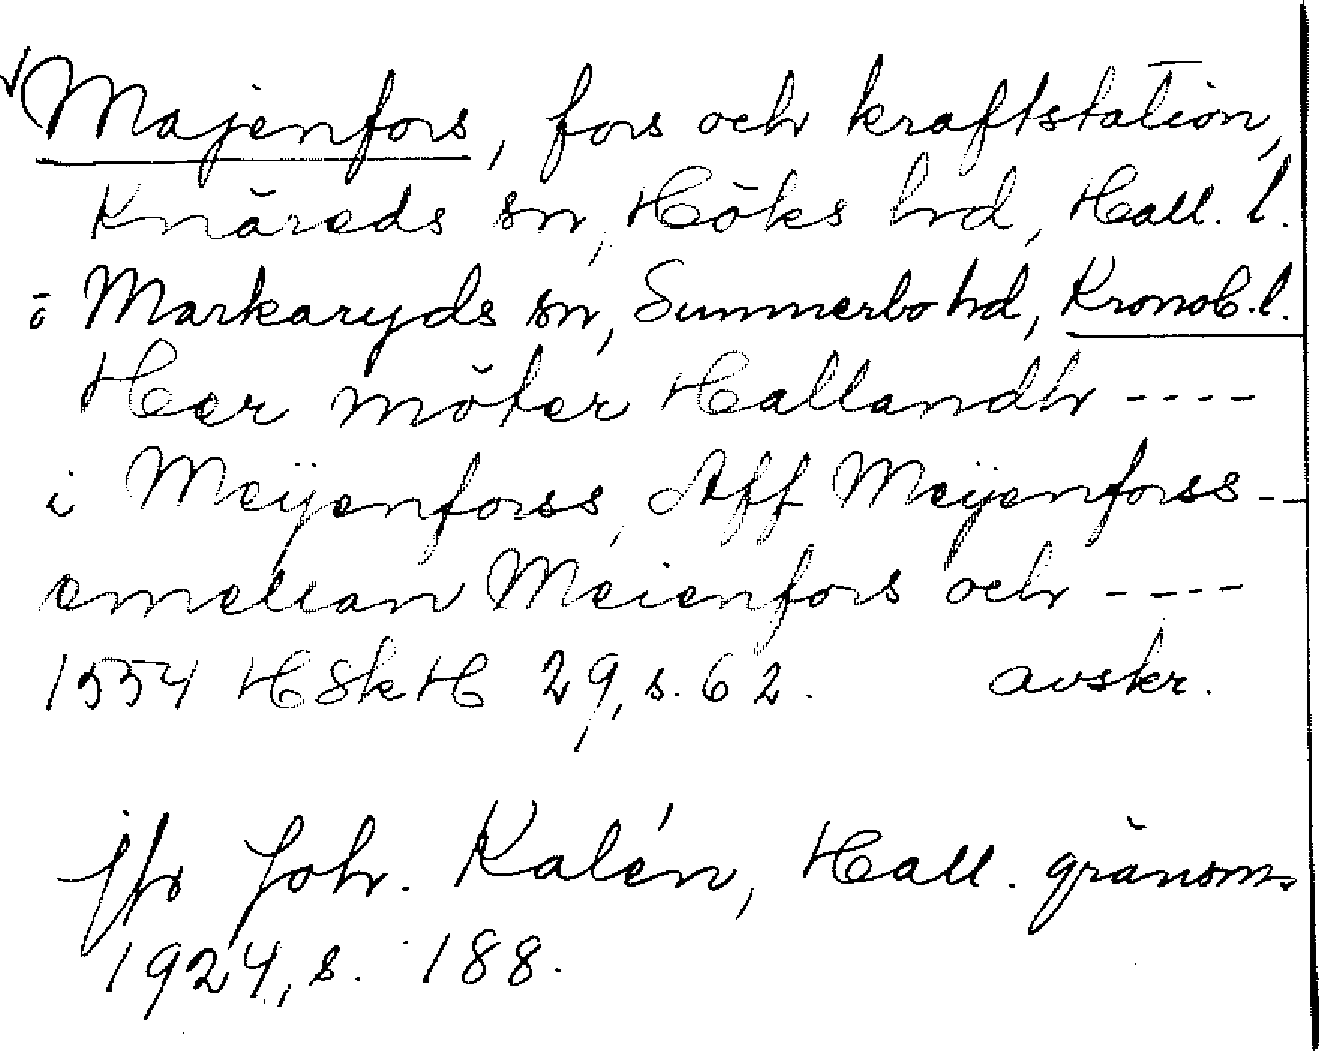 Majenfors, fors och kraftstation,
Knäreds sn, Höks hd, Hall. l.
ö Markaryds sn, Sunnerbo hd, Kronob. l.
Her möter Hallandh ----
i Meÿenforss, Aff Meÿenforss --
emellan Meienfors och ----
1554 HSkH 29, s. 62. avskr.
jfr Joh. Kalén, Hall. gränsm.
1924, s. 188.